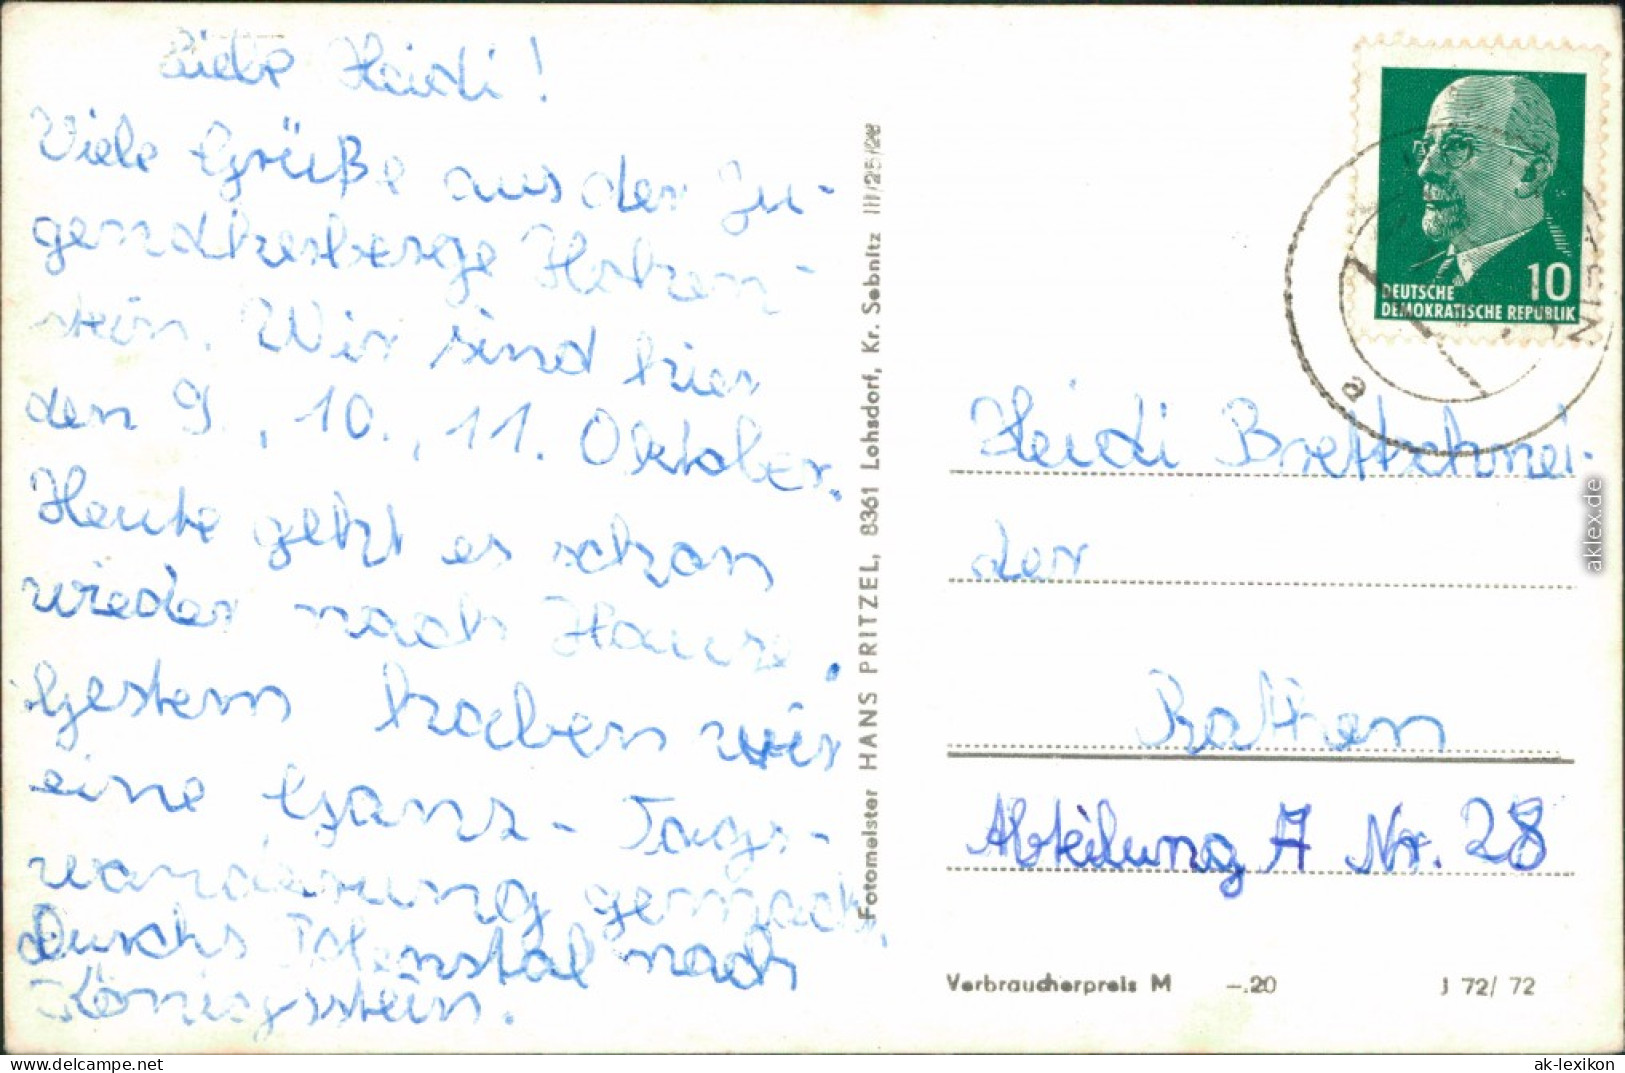 Liebe Heidi!
Viele Grüße aus der Ju-
gendherberge Hohen-
stein. Wir sind hier
den 9., 10., 11. Oktober.
Heute geht es schon
wieder nach Hause.
Gestern haben wir
eine Ganz-Tags-
wanderung gemacht,
durchs Polenztal nach
Königsstein.
Fotomeister HANS PRITZEL, 8361 Lohsdorf, Kr. Sebnitz III/25/28
10
DEUTSCHE
DEMOKRATISCHE REPUBLIK
a
Heidi Brettschnei-
der
Rathen
Abteilung A Nr. 28
Verbraucherpreis M -.20 J 72/ 72
aklex.de
www.delcampe.net
ak-lexikon